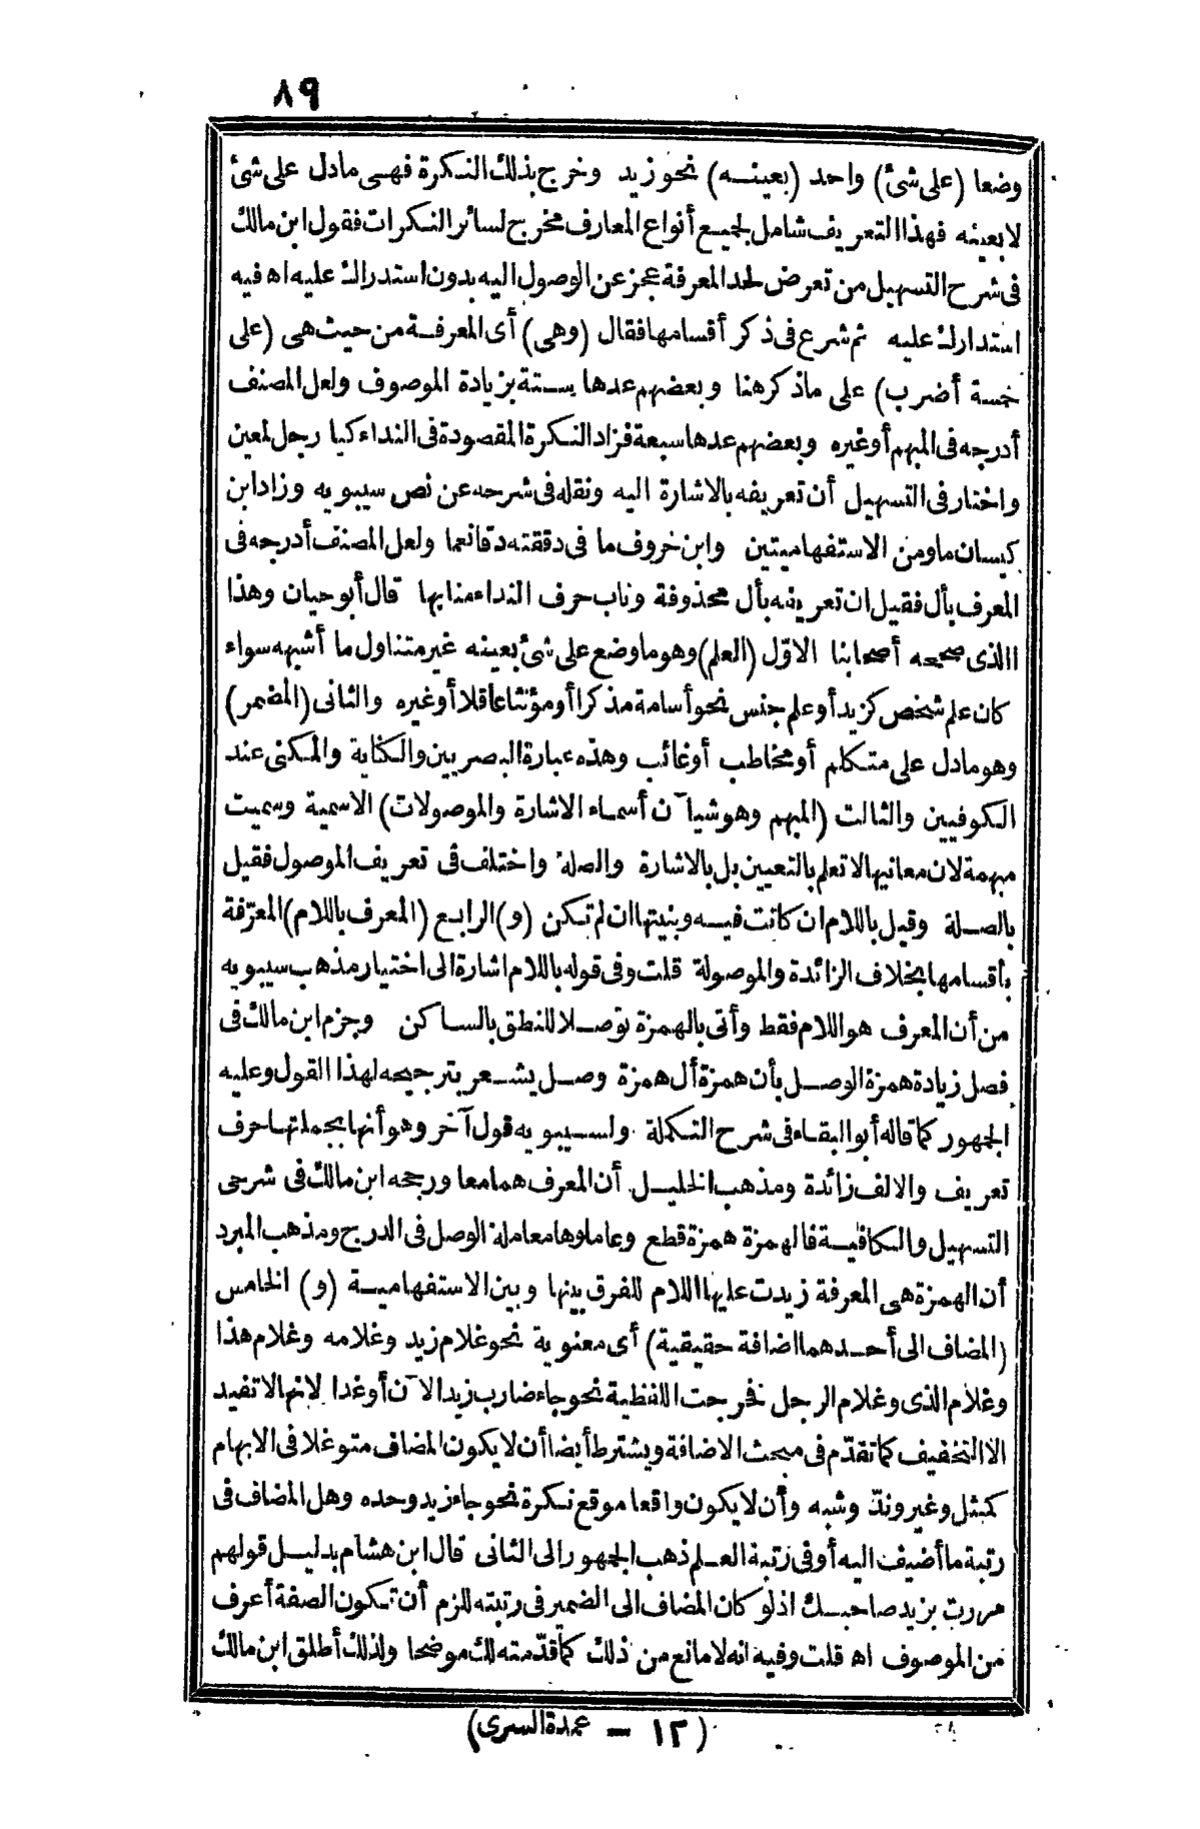 ٨٩
وضعا (على شئ) واحد (بعينه) نحو زيد وخرج بذلك النكرة فهى مادل على شئ
لا بعينه فهذا التعريف شامل لجميع أنواع المعارف مخرج لسائر النكرات فقول ابن مالك
فى شرح التسهيل من تعرض لحد المعرفة عجز عن الوصول اليه بدون استدراك عليه اه فيه
استدارك عليه ثم شرع فى ذكر أقسامها فقال (وهى) أى المعرفة من حيث هى (على
خمسة أضرب) على ماذكر هنا وبعضهم عدها ستة بزيادة الموصوف ولعل المصنف
أدرجه فى المبهم أو غيره وبعضهم عدها سبعة فزاد النكرة المقصودة فى النداء كيا رجل لمعين
واختار فى التسهيل أن تعريفه بالاشارة اليه ونقله فى شرحه عن نص سيبويه وزاد ابن
كيسان ما ومن الاستفهاميتين وابن خروف ما فى دققته دقا نعما ولعل المصنف أدرجه فى
المعرف بأل فقيل ان تعريفه بأل محذوفة وناب حرف النداء منابها قال أبو حيان وهذا
االذى صححه أصحابنا الاوّل (العلم) وهو ماوضع على شئ بعينه غير متناول ما أشبهه سواء
كان علم شخص كزيد أو علم جنس نحو أسامة مذكرا أو مؤنثا عاقلا أو غيره والثانى (المضمر)
وهو مادل على متكلم أو مخاطب أو غائب وهذه عبارة البصريين والكناية والمكنى عند
الكوفيين والثالث (المبهم وهو شيآن أسماء الاشارة والموصولات) الاسمية وسميت
مبهمة لان معانيها لا تعلم بالتعيين بل بالاشارة والصلة واختلف فى تعريف الموصول فقيل
بالصلة وقيل باللام ان كانت فيه وبنيتها ان لم تكن (و) الرابع (المعرف باللام) المعرّفة
بأقسامها بخلاف الزائدة والموصولة قلت وفى قوله باللام اشارة الى اختيار مذهب سيبويه
من أن المعرف هو اللام فقط وأتى بالهمزة توصلا للنطق بالساكن وجزم ابن مالك فى
فصل زيادة همزة الوصل بأن همزة أل همزة وصل يشعر بترجيحه لهذا القول وعليه
الجهور كما قاله أبو البقاء فى شرح التكملة ولسيبويه قول آخر وهو أنها بجملتها حرف
تعريف والالف زائدة ومذهب الخليل أن المعرف هما معا ورجحه ابن مالك فى شرحى
التسهيل والكافية فالهمزة همزة قطع وعاملوها معاملة الوصل فى الدرج ومذهب المبرد
أن الهمزة هى المعرفة زيدت عليها اللام للفرق بينها وبين الاستفهامية (و) الخامس
(المضاف الى أحدهما اضافة حقيقية) أى معنوية نحو غلام زيد وغلامه وغلام هذا
وغلام الذى وغلام الرجل فخرجت اللفظية نحو جاء ضارب زيد الآن أو غدا لانها لا تفيد
الا التخفيف كما تقدّم فى مبحث الاضافة ويشترط أيضا أن لا يكون المضاف متوغلا فى الابهام
كمثل وغير وندّ وشبه وأن لا يكون واقعا موقع نكرة نحو جاء زيد وحده وهل المضاف فى
رتبة ما أضيف اليه أو فى رتبة العلم ذهب الجهور الى الثانى قال ابن هشام بدليل قولهم
مررت بزيد صاحبك اذ لو كان المضاف الى الضمير فى رتبته للزم أن تكون الصفة أعرف
من الموصوف اه قلت وفيه انه لا مانع من ذلك كما قدّمته لك موضحا ولذلك أطلق ابن مالك
(١٢ — عمدة السرى)